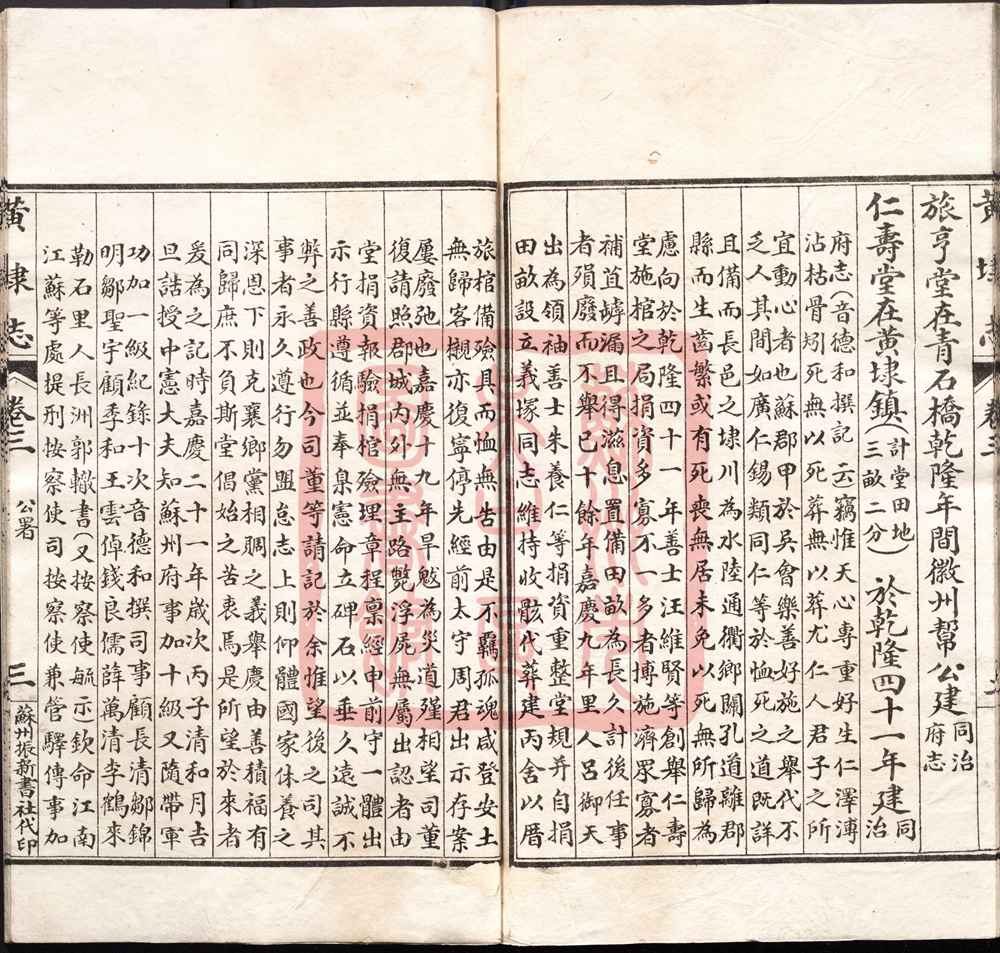 旅亨堂在青石橋乾隆年間徽州幫公建同治府志
仁壽堂在黃埭鎮(計堂田地三畝二分)於乾隆四十一年建同治
府志(音德和撰記云竊惟天心專重好生仁澤溥
沾枯骨矧死無以死葬無以葬尤仁人君子之所
宜動心者也蘇郡甲於吳會樂善好施之舉代不
乏人其間如廣仁錫類同仁等於恤死之道既詳
且備而長邑之埭川為水陸通衢鄉關孔道雖郡
縣而生齒繁或有死喪無居未免以死無所歸為
慮向於乾隆四十一年善士汪維賢等創舉仁壽
堂施棺之局捐資多寡不一多者博施濟眾寡者
補苴罅漏且得滋息置備田畝為長久計後任事
者殞廢而不舉已十餘年嘉慶九年里人呂御天
出為領袖善士朱養仁等捐資重整堂規并自捐
田畝設立義塚同志維持收骸代葬建丙舍以厝
旅棺備殮具而恤無告由是不羈孤魂咸登安土
無歸客櫬亦復寧停先經前太守周君出示存案
屢廢弛也嘉慶十九年旱魃為災道殣相望司董
復請照郡城內外無主路斃浮屍無屬出認者由
堂捐資報驗捐棺殮埋章程稟經申前守一體出
示行縣遵循並奉臬憲命立碑石以垂久遠誠不
弊之善政也今司董等請記於余惟望後之司其
事者永久遵行勿盟怠志上則仰體國家休養之
深恩下則克襄鄉黨相賙之義舉慶由善積福有
同歸庶不負斯堂倡始之苦衷焉是所望於來者
爰為之記時嘉慶二十一年歲次丙子清和月吉
旦誥授中憲大夫知蘇州府事加十級又隨帶軍
功加一級紀錄十次音德和撰司事顧長清鄒錦
明鄒聖宇顧季和王雲倬錢艮儒薛萬清李鶴來
勒石里人長洲郭轍書(又按察使毓示)欽命江南
江蘇等處提刑按察使司按察使兼管驛傳事加
黃埭志 卷三 公署 三 蘇州振新書社代印